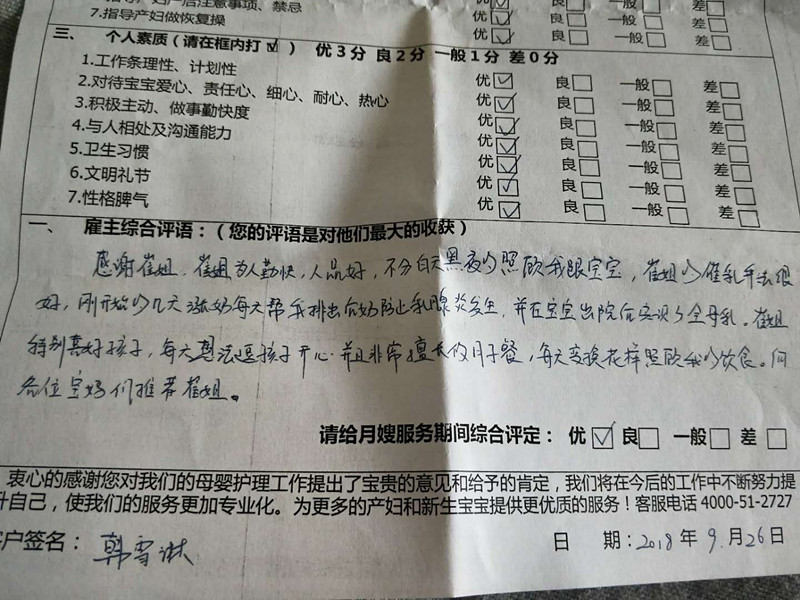 6.指导产妇产后注意事项、禁忌 优☑ 良□ 一般□ 差□
7.指导产妇做恢复操 优☑ 良□ 一般□ 差□
三、 个人素质（请在框内打☑） 优3分 良2分 一般1分 差0分
1.工作条理性、计划性 优☑ 良□ 一般□ 差□
2.对待宝宝爱心、责任心、细心、耐心、热心 优☑ 良□ 一般□ 差□
3.积极主动、做事勤快度 优☑ 良□ 一般□ 差□
4.与人相处及沟通能力 优☑ 良□ 一般□ 差□
5.卫生习惯 优☑ 良□ 一般□ 差□
6.文明礼节 优☑ 良□ 一般□ 差□
7.性格脾气 优☑ 良□ 一般□ 差□
一、 雇主综合评语：（您的评语是对他们最大的收获）
感谢崔姐，崔姐为人勤快，人品好，不分白天黑夜的照顾我跟宝宝，崔姐的催乳手法很
好，刚开始的几天涨奶每天帮我排出余奶防止乳腺炎发生，并在宝宝出院后实现了全母乳。崔姐
特别喜好孩子，每天想法逗孩子开心。并且非常擅长做月子餐，每天变换花样照顾我的饮食。向
各位宝妈们推荐崔姐。
请给月嫂服务期间综合评定： 优☑ 良□ 一般□ 差□
衷心的感谢您对我们的母婴护理工作提出了宝贵的意见和给予的肯定，我们将在今后的工作中不断努力提
升自己，使我们的服务更加专业化。为更多的产妇和新生宝宝提供更优质的服务！客服电话 4000-51-2727
客户签名： 韩雪淋 日 期：2018年9.月26日